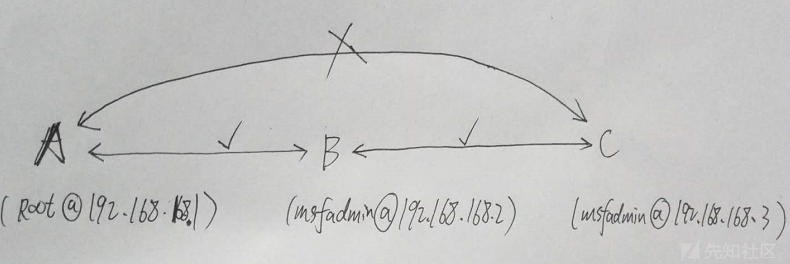 A B C
(Root@192.168.168.1) (msfadmin@192.168.168.2) (msfadmin@192.168.168.3)
先知社区